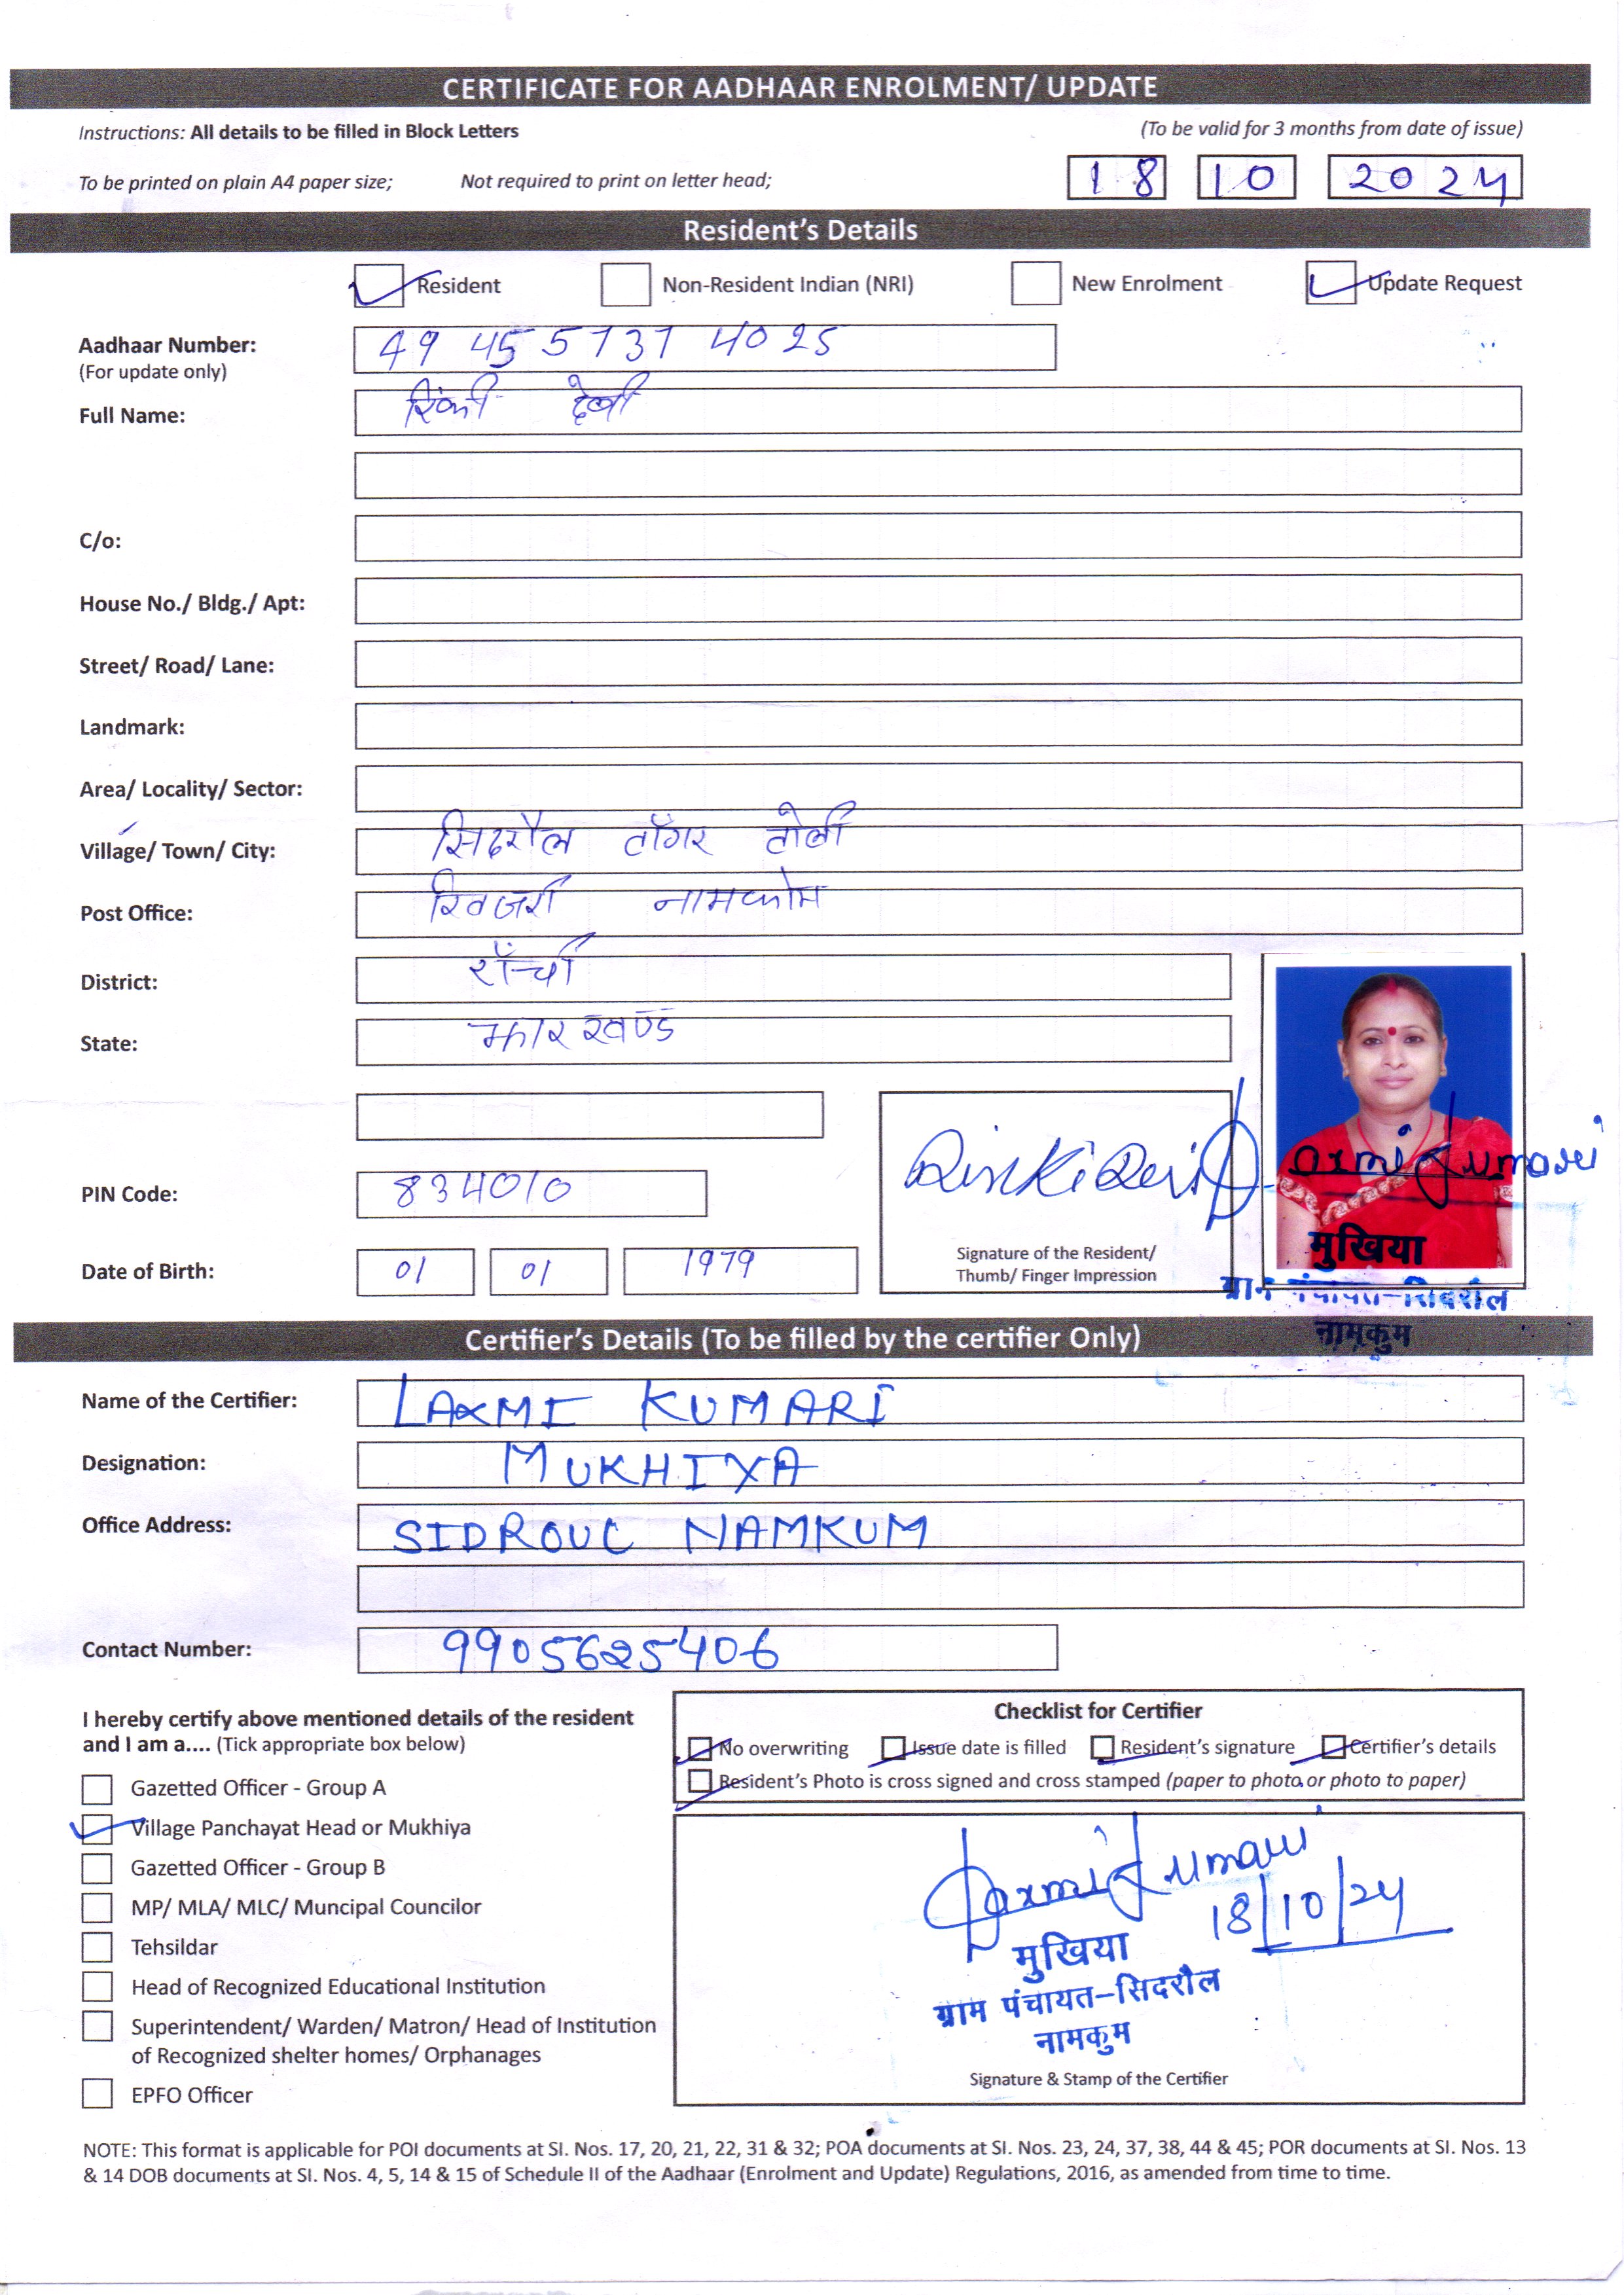 CERTIFICATE FOR AADHAAR ENROLMENT/ UPDATE
Instructions: All details to be filled in Block Letters (To be valid for 3 months from date of issue)
To be printed on plain A4 paper size; Not required to print on letter head; 18 10 2024
Resident's Details
Resident Non-Resident Indian (NRI) New Enrolment Update Request
Aadhaar Number: 49 45 5737 4025
(For update only)
Full Name: रिंकी देवी
C/o:
House No./ Bldg./ Apt:
Street/ Road/ Lane:
Landmark:
Area/ Locality/ Sector:
Village/ Town/ City: सिदरौल टोंगर टोली
Post Office: खिजरी नामकोम
District: राँची
State: झारखण्ड
PIN Code: 834010
Rinki Devi
Laxmi Kumari
मुखिया
ग्राम पंचायत-सिदरौल
नामकुम
Date of Birth: 01 01 1979
Signature of the Resident/
Thumb/ Finger Impression
Certifier's Details (To be filled by the certifier Only)
Name of the Certifier: LAXMI KUMARI
Designation: MUKHIYA
Office Address: SIDROUL NAMKUM
Contact Number: 9905625406
I hereby certify above mentioned details of the resident
and I am a.... (Tick appropriate box below)
Gazetted Officer - Group A
Village Panchayat Head or Mukhiya
Gazetted Officer - Group B
MP/ MLA/ MLC/ Muncipal Councilor
Tehsildar
Head of Recognized Educational Institution
Superintendent/ Warden/ Matron/ Head of Institution
of Recognized shelter homes/ Orphanages
EPFO Officer
Checklist for Certifier
No overwriting Issue date is filled Resident's signature Certifier's details
Resident's Photo is cross signed and cross stamped (paper to photo or photo to paper)
Laxmi Kumari
18/10/24
मुखिया
ग्राम पंचायत-सिदरौल
नामकुम
Signature & Stamp of the Certifier
NOTE: This format is applicable for POI documents at SI. Nos. 17, 20, 21, 22, 31 & 32; POA documents at SI. Nos. 23, 24, 37, 38, 44 & 45; POR documents at SI. Nos. 13
& 14 DOB documents at SI. Nos. 4, 5, 14 & 15 of Schedule II of the Aadhaar (Enrolment and Update) Regulations, 2016, as amended from time to time.